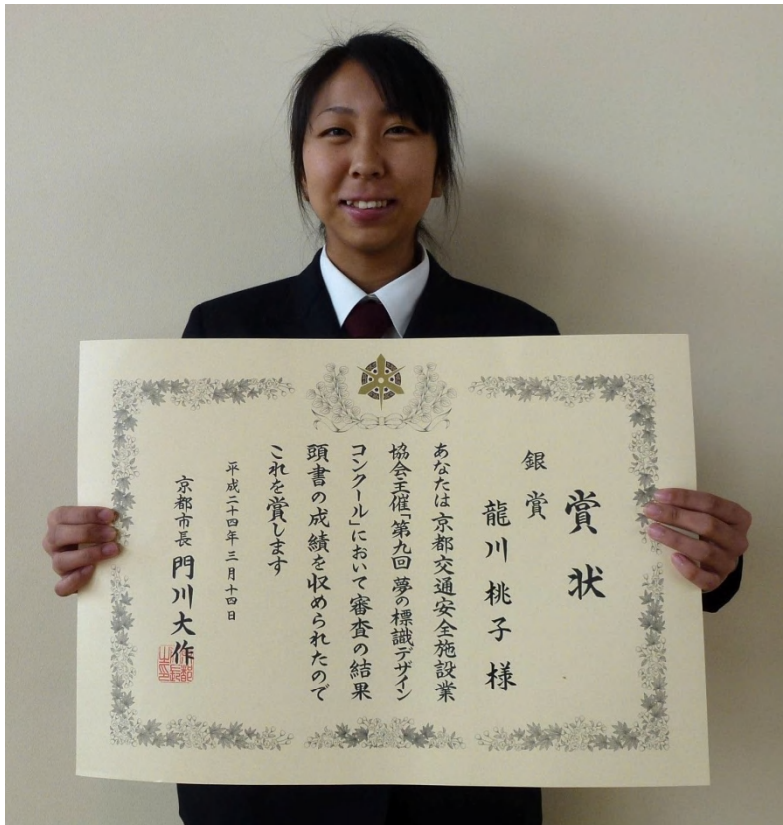 賞状
銀賞
龍川桃子様
あなたは京都交通安全施設業
協会主催「第九回 夢の標識デザイン
コンクール」において審査の結果
頭書の成績を収められたので
これを賞します
平成二十四年三月十四日
京都市長 門川大作